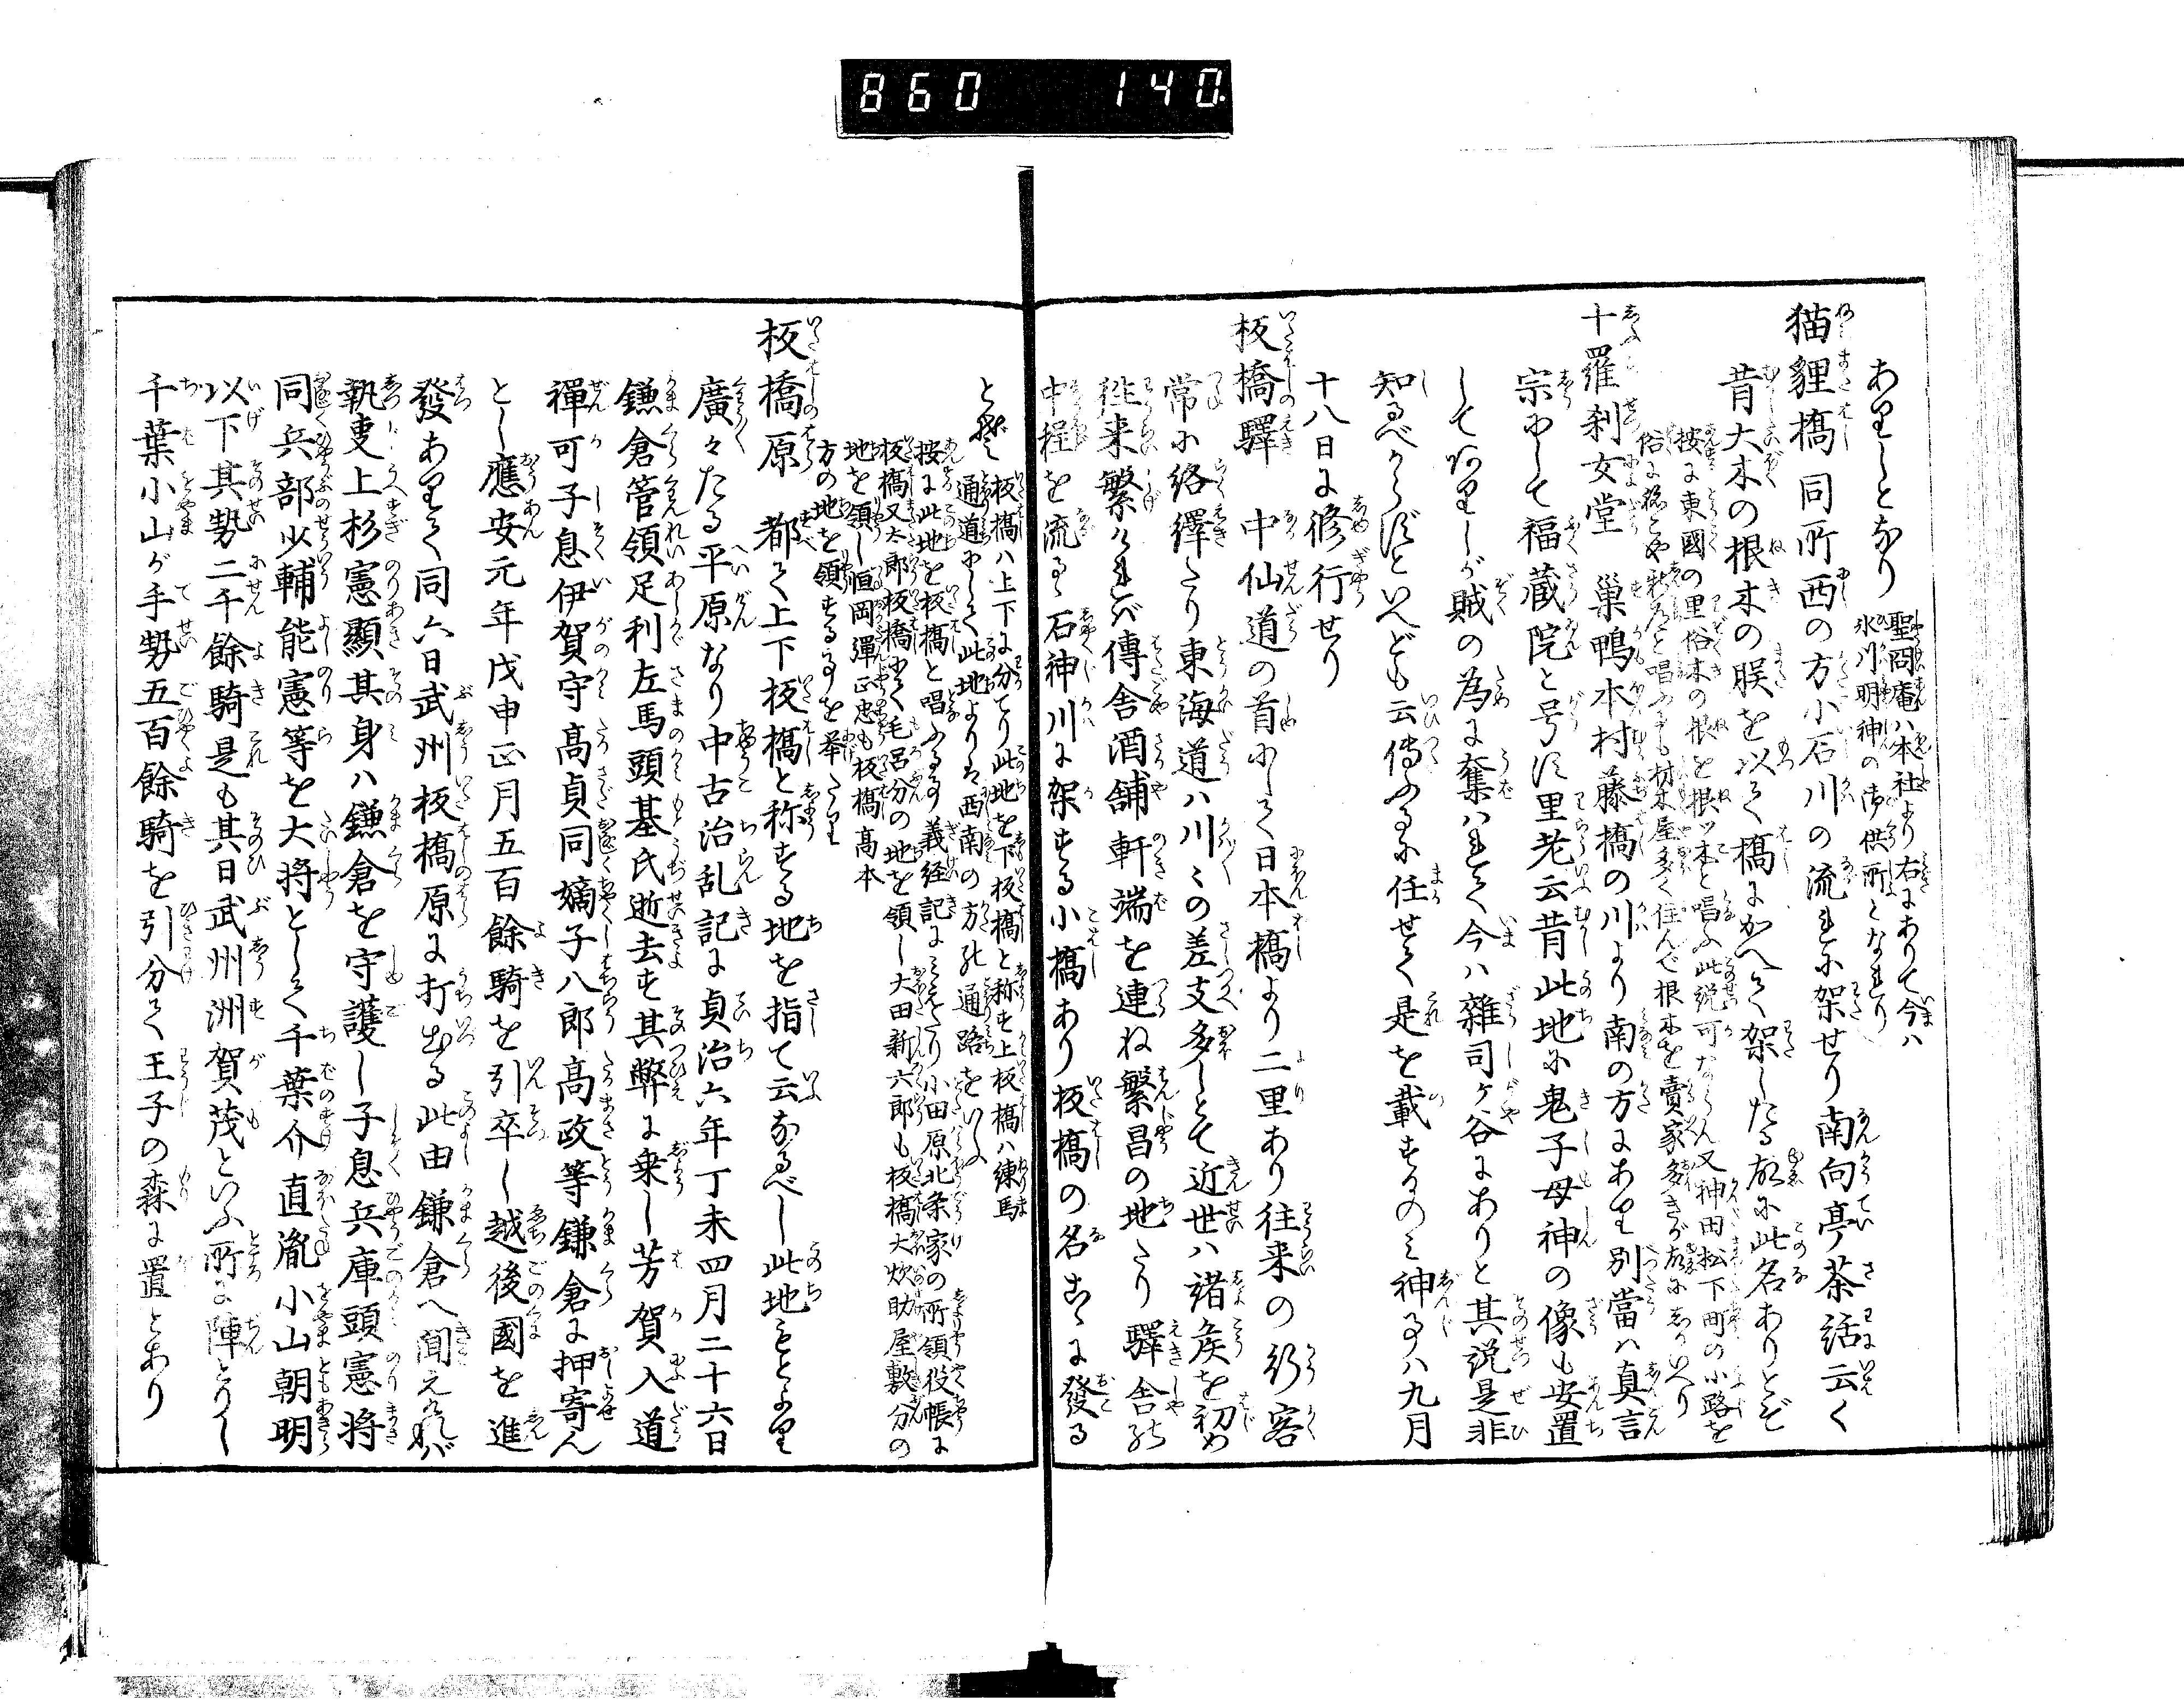 860 140.
ありしとなり
聖問庵ハ本社より右にありて今ハ
氷川明神の御供所となれり
猫貍橋 同所西の方小石川の流れに架せり南向亭茶話云く
昔大木の根木の朘を以て橋にかへて架したる故に此名ありとぞ
按に東國の里俗木の根と根ッ木と唱ふ此説可ならん又神田松下町の小路を
俗に
材木屋多く住んで根木を賣家多きが故にしかいへり
十羅刹女堂 巣鴨本村藤橋の川より南の方にあり別當ハ真言
宗にして福蔵院と号す里老云昔此地に鬼子母神の像も安置
してありしが賊の為に奪ハれて今ハ雜司ヶ谷にありと其説是非
知るべからずといへども云傳ふるに任せて是を載するのミ神事ハ九月
十八日に修行せり
板橋驛 中仙道の首にして日本橋より二里あり往来の行客
常に絡繹たり東海道ハ川々の差支多しとて近世ハ諸侯を初め
徃来繁けれバ傳舎酒舗軒端を連ね繁昌の地たり驛舎の
中程を流るゝ石神川に架する小橋あり板橋の名こゝに發る
とぞ
板橋ハ上下に分てり此地を下板橋と称す上板橋ハ練馬
通道にして此地よりハ西南の方の通路をいふ
按に此地を板橋と唱ふる事義経記にミえたり小田原北条家の所領役帳に
板橋又太郎板橋にて毛呂分の地を領し大田新六郎も板橋大炊助屋敷分の
地を領し恒岡彈正忠も板橋髙本
方の地を領する事を挙たり
板橋原 都て上下板橋と称する地を指て云なるべし此地もとより
廣々たる平原なり中古治乱記に貞治六年丁未四月二十六日
鎌倉管領足利左馬頭基氏逝去す其弊に乗し芳賀入道
禪可子息伊賀守髙貞同嫡子八郎髙政等鎌倉に押寄ん
とし應安元年戊申正月五百餘騎を引卒し越後國を進
發ありて同六日武州板橋原に打出る此由鎌倉へ聞えけれバ
執叓上杉憲顯其身ハ鎌倉を守護し子息兵庫頭憲将
同兵部少輔能憲等を大将として千葉介直胤小山朝明
以下其勢二千餘騎是も其日武州洲賀茂といふ所に陣とりし
千葉小山が手勢五百餘騎を引分て王子の森に置とあり